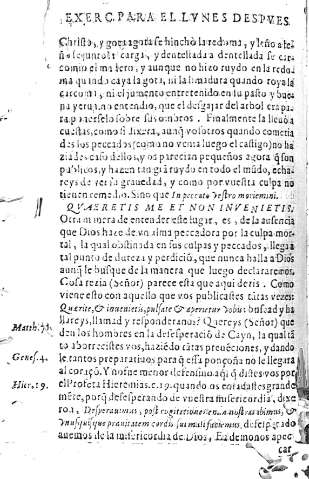 EXERC. PARA EL LVNES DESPVES.
Christo, y gota a gota se hinchò la redoma, y leño a le
ño se juntò la carga, y dentellada a dentellada se car
comio el madero, y aunque no hizo ruydo en la redo
ma quando caya la gota, ni la limadura quando roya la
carcoma, ni el jumento entretenido en su pasto y bue
na yerua, no entendio, que el desgajar del arbol era pa
ra ponerselo sobre sus ombros. Finalmente la lleuò a
cuestas, como si dixera, aunq̃ vosotros quando cometia
des los peccados (como no venia luego el castigo) no ha
ziades caso dellos, y os parecian pequeños agora q̃ son
publicos, y hazen tan grã ruydo en todo el mũdo, echa
reys de ver la grauedad, y como por vuestra culpa no
tienen remedio. Sino que In peccato vestro moriemini.
QVAERETIS ME ET NON INVENIETIS.
Otra manera de entender este lugar, es, de la ausencia
que Dios haze de vn alma peccadora por la culpa mor-
tal, la qual obstinada en sus culpas y peccados, llega a
tal punto de dureza y perdiciõ, que nunca halla a Dios
aunq̃ le busque de la manera que luego declararemos.
Cosa rezia (Señor) parece esta que aqui dezis. Como
viene esto con aquello que vos publicastes tãtas vezes:
Quærite, & inuenietis, pulsate & aperietur vobis: buscad y ha
llareys, llamad y responderanos? Quereys (Señor) que
Matth. 7.
den los hombres en la desesperaciõ de Cayn, la qual tã
to aborrecistes vos, haziẽdo tãtas preuẽciones, y dando
Genes. 4.
le tantos preparatiuos para q̃ essa ponçoña no le llegara
al coraçõ. Y no fue menor defensiuo aql q̃ distes vos por
Hier. 19.
el Profeta Hieremias. c. 19. quando os enojadastes grande
mẽte, porq̃ desesperando de vuestra misericordia, dixe
ro.
Desperauimus, post cogitationes enim nostras ibimus, &
vnusquisque prauitatem cordis sui mali faciemus. desesperado
auemos de la misericordia de Dios,
car